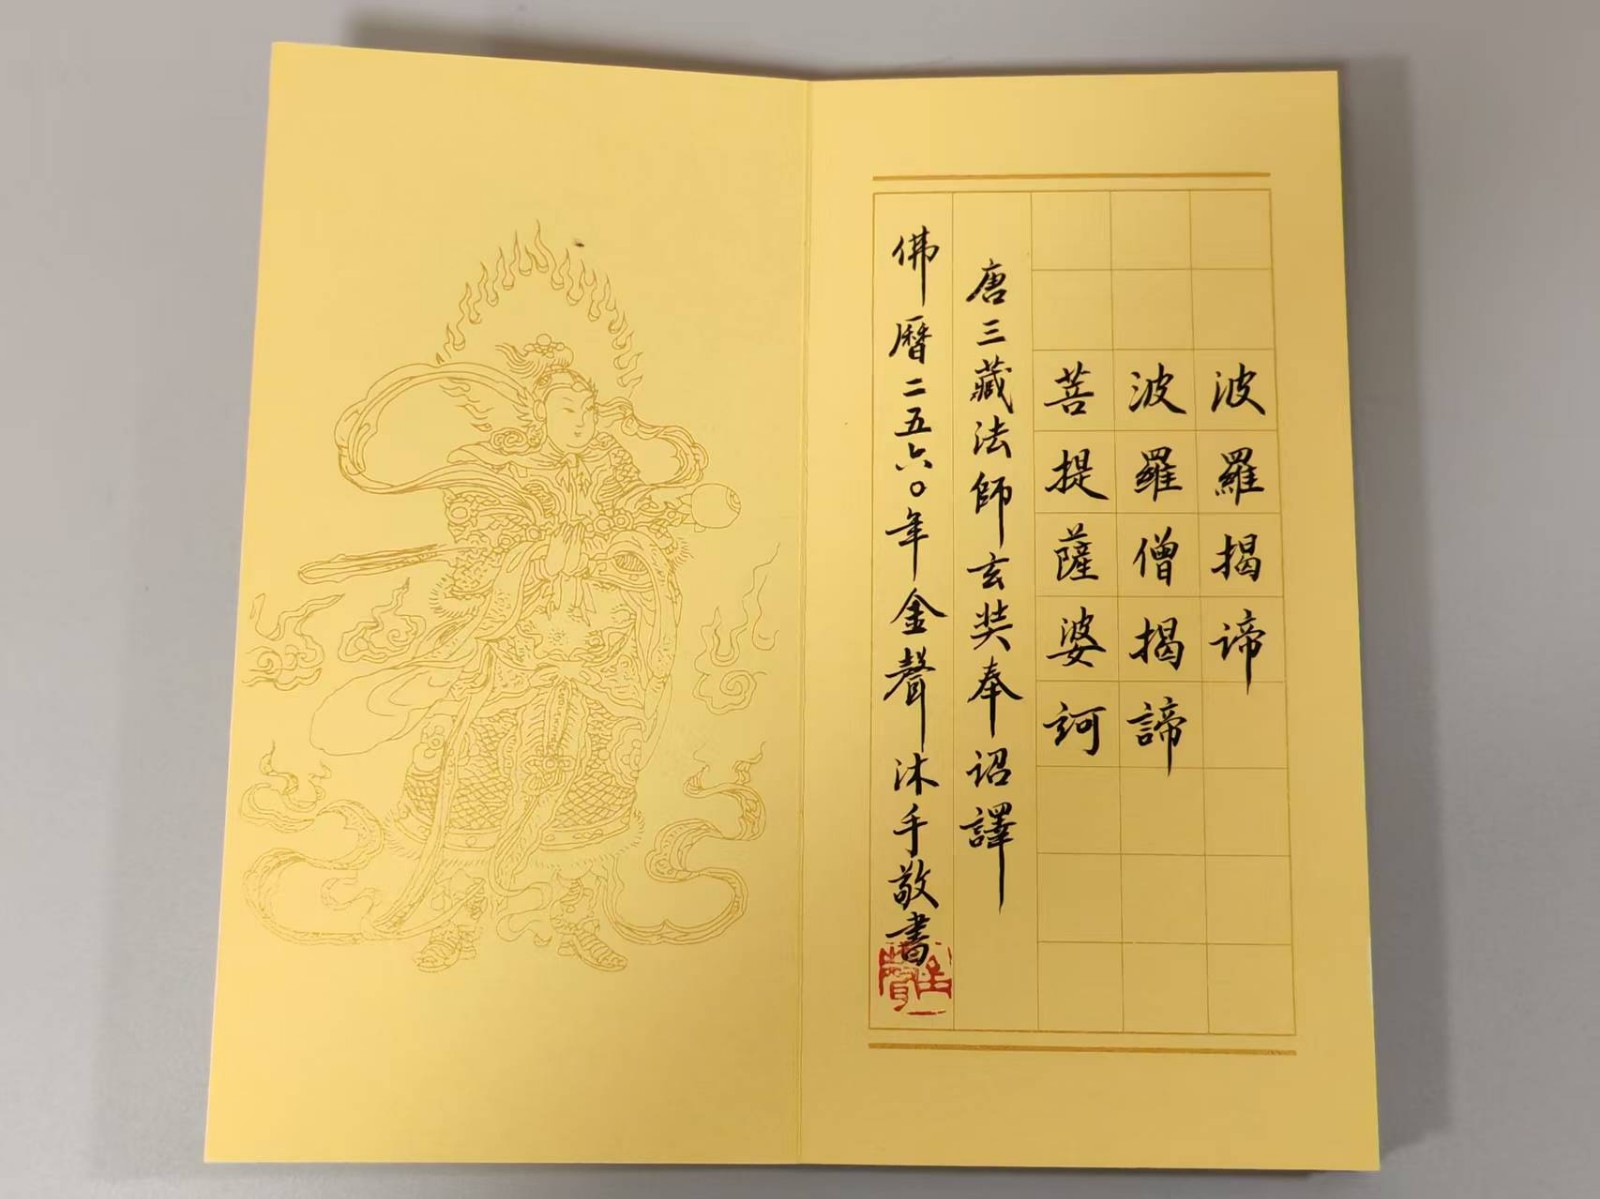 波羅揭諦
波羅僧揭諦
菩提薩婆訶
唐三藏法師玄奘奉詔譯
佛曆二五六〇年金聲沐手敬書